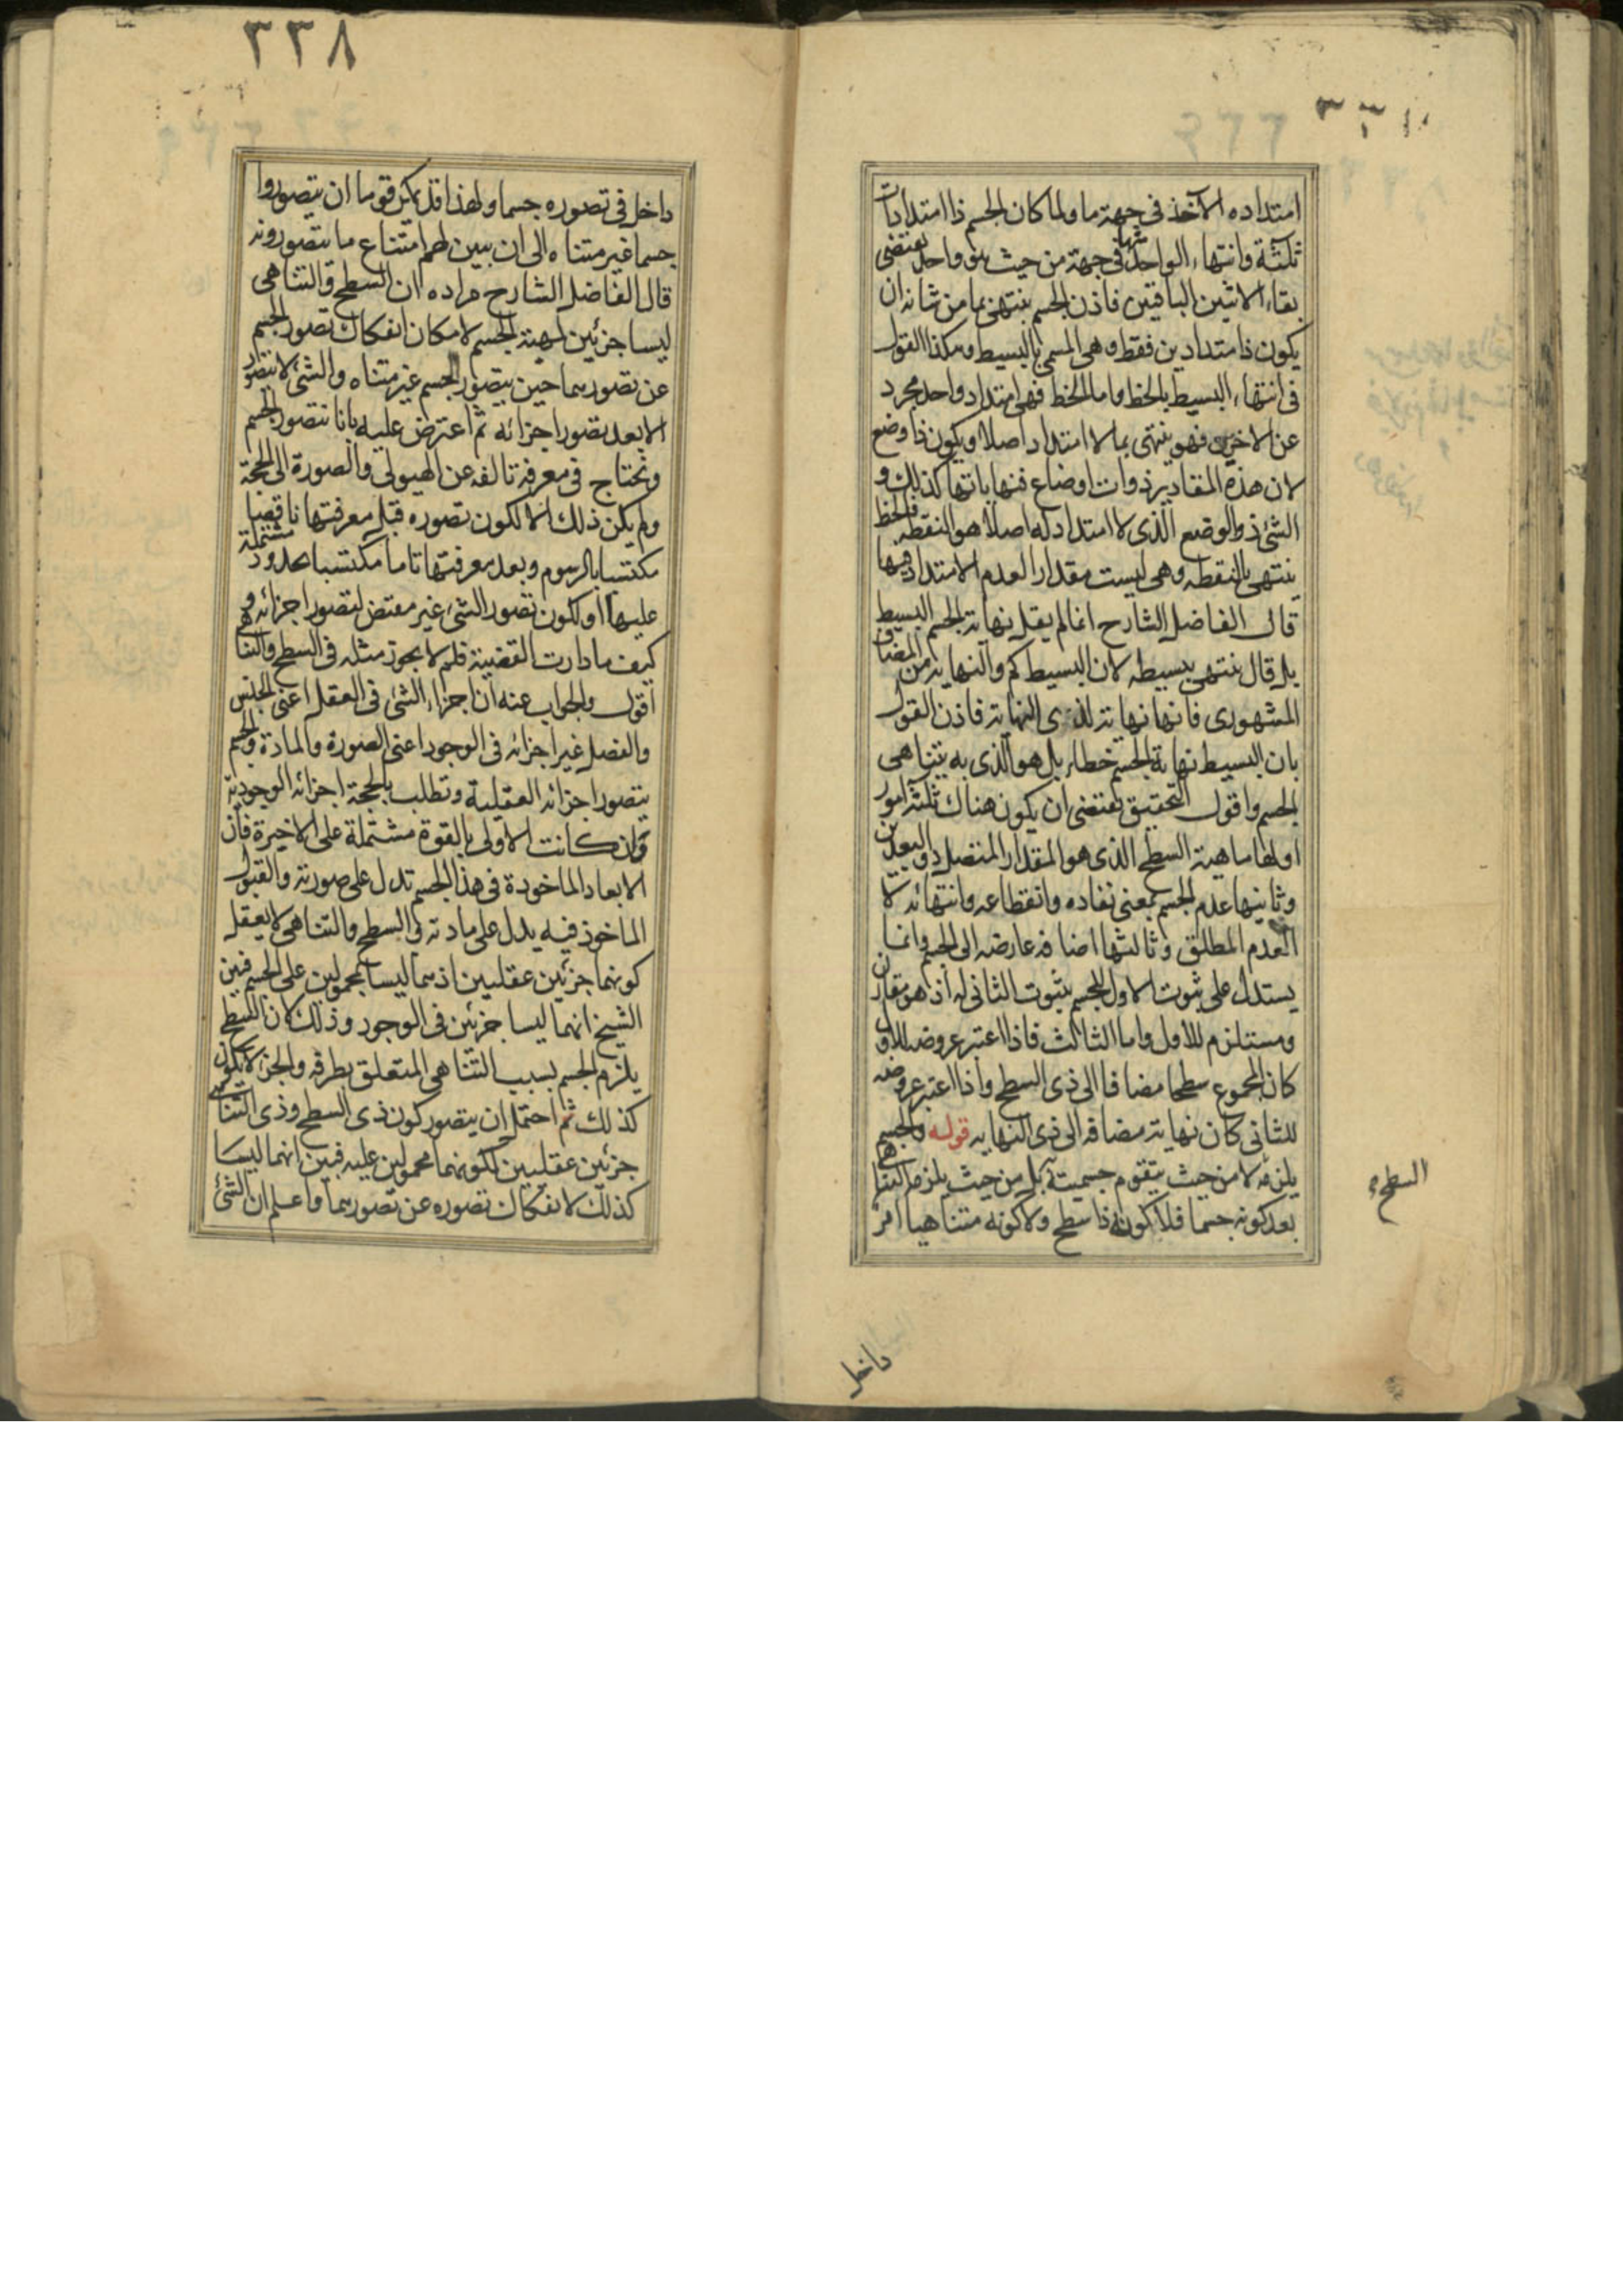 امتداده الآخذ في جهة ما ولما كان الجسم ذا امتدادات
ثلثة وانتهاء الواحد منها في جهة من حيث هو واحد يقتضى
بقاء الاثنين الباقيين فاذن الجسم ينتهى بما من شانه ان
يكون ذا امتدادين فقط وهى المسمى بالبسيط وهكذا القول
فى انتهاء البسيط بالخط واما الخط فهى امتداد واحد مجرد
عن الاخرين فهو ينتهى بما لا امتداد اصلا ويكون ذا وضع
لان هذه المقادير ذوات اوضاع فنهاياتها كذلك و
الشئ ذو الوضع الذى لا امتداد له اصلا هو النقطه فالخط
ينتهى بالنقطه وهى ليست مقدارا لعدم الامتداد فيها
قال الفاضل الشارح انما لم يقل نهاية الجسم البسيط
بل قال ينتهى ببسيطه لان البسيط كم والنهاية من المضاف
المشهورى فانها نهاية لذى النهاية فاذن القول
بان البسيط نهاية الجسم خطاء بل هو الذى به يتناهى
الجسم واقول التحقيق يقتضى ان يكون هناك ثلثة امور
اولها ماهية السطح الذى هو المقدار المتصل ذو البعدين
وثانيها عدم الجسم بمعنى نفاده وانقطاعه وانتهائه لا
العدم المطلق وثالثها اضافة عارضة الى الجسم وانما
يستدل على ثبوت الاول للجسم بثبوت الثانى له اذ هو مقارن
ومستلزم للأول واما الثالث فاذا اعتبر عروضه للأول
كان المجموع سطحا مضافا الى ذى السطح واذا اعتبر عروضه
للثانى كان نهاية مضافة الى ذى النهاية قوله والجسم
يلزمه لا من حيث يتقوم جسميته به بل من حيث يلزمه التناهى
بعد كونه جسما فلا كونه ذا سطح ولا كونه متناهيا امر
السطح
داخل
٣٣٨
داخل فى تصوره جسما ولهذا قد يمكن قوما ان يتصوروا
جسما غير متناه الى ان يبين لهم امتناع ما يتصورونه
قال الفاضل الشارح مراده ان السطح والتناهى
ليسا جزئين لمهية الجسم لامكان انفكاك تصور الجسم
عن تصورهما حين يتصور الجسم غير متناه والشئ لا يتصور
الا بعد تصور اجزائه ثم اعترض عليه بانا نتصور الجسم
ونحتاج فى معرفة تالفه عن الهيولى والصورة الى الحجة
ولم يكن ذلك الا لكون تصوره قبل معرفتها ناقصا
مكتسبا بالرسوم وبعد معرفتها تاما مكتسبا بحدود مشتملة
عليها او لكون تصور الشئ غير مقتض لتصور اجزائه و
كيف ما دارت القضية فلم لا يجوز مثله فى السطح والتناهى
اقول والجواب عنه ان اجزاء الشئ فى العقل اعنى الجنس
والفصل غير اجزائه فى الوجود اعنى الصورة والمادة والجسم
يتصور اجزائه العقلية وتطلب بالحجة اجزائه الوجودية
وان كانت الاولى بالقوة مشتملة على الاخيرة فان
الابعاد الماخوذة فى هذا الجسم تدل على صورته والقبول
الماخوذ فيه يدل على مادته والسطح والتناهى لا يعقل
كونهما جزئين عقليين اذ هما ليسا بمحمولين على الجسم فبين
الشيخ انهما ليسا جزئين فى الوجود وذلك لان السطح
يلزم الجسم بسبب التناهى المتعلق بطرفه والجزء لا يكون
كذلك ثم احتمل ان يتصور كون ذى السطح وذى التناهى
جزئين عقليين لكونهما محمولين عليه فبين انهما ليسا
كذلك لانفكاك تصوره عن تصورهما واعلم ان الشئ